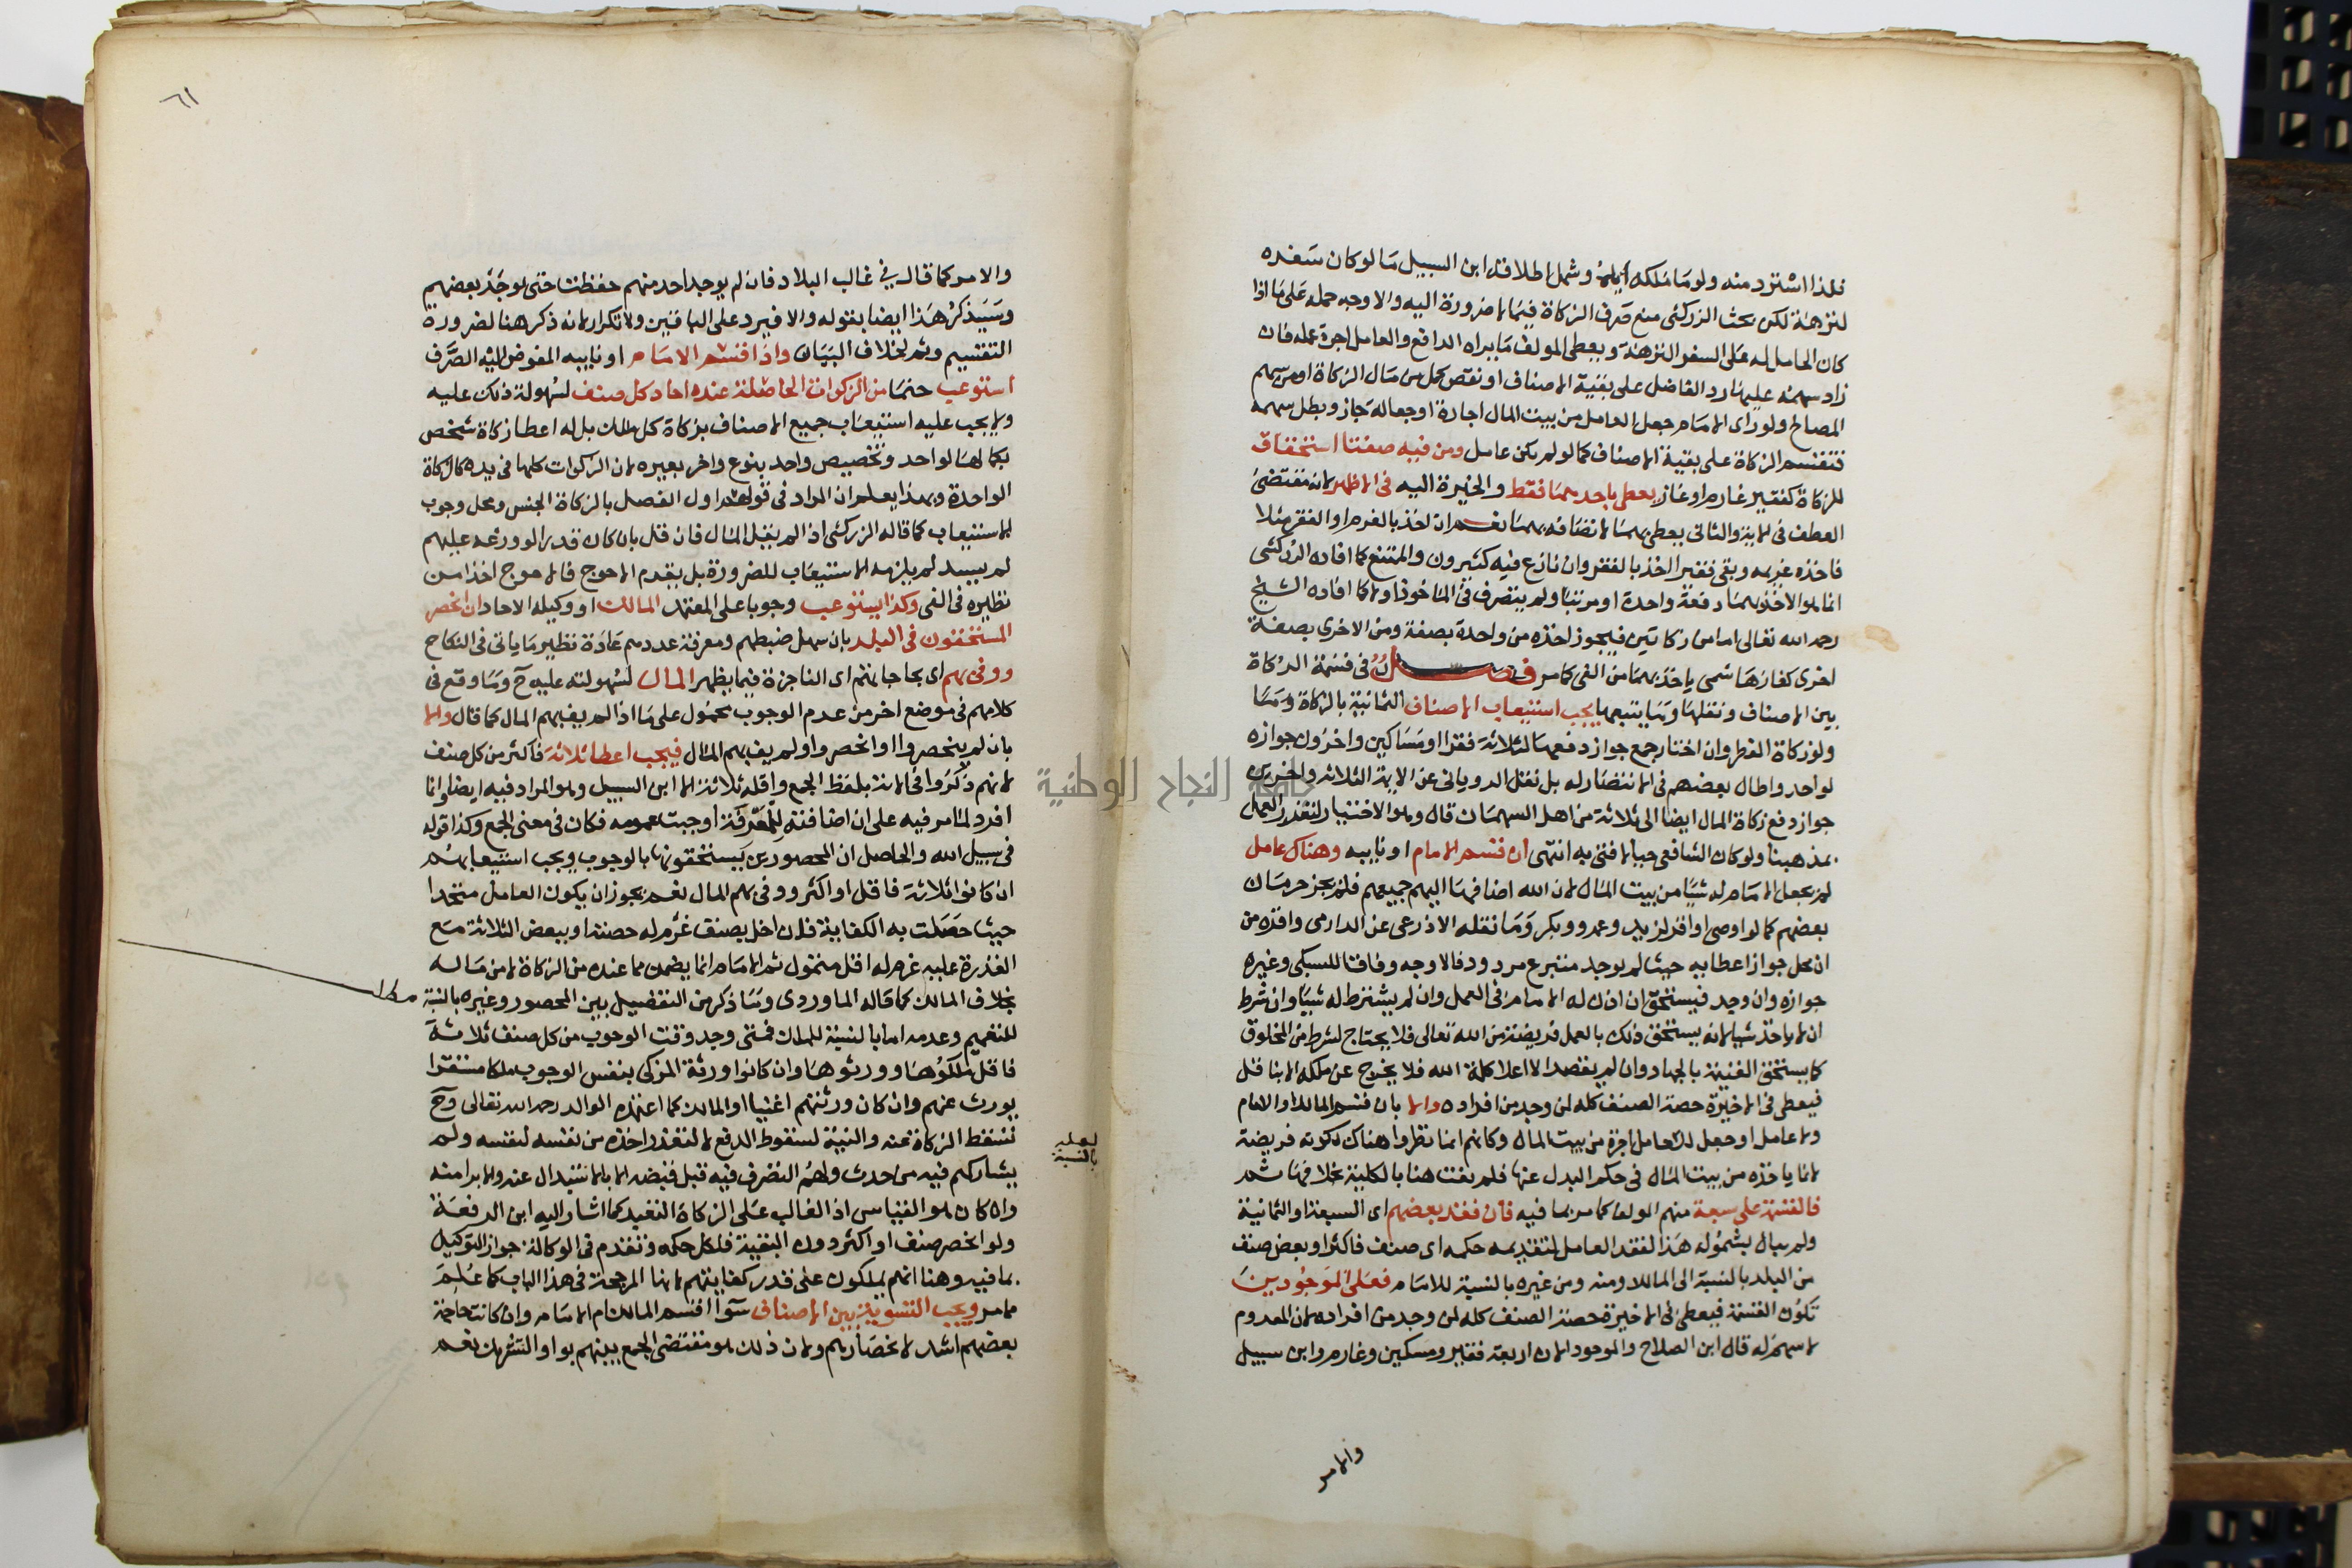 فلذا استرد منه ولو ما ملكه اياه وشمل اطلاقه ابن السبيل ما لو كان سفره
لنزهة لكن بحث الزركشى منع صرف الزكاة فيما لا ضرورة اليه والاوجه حمله على ما اذا
كان الحامل له على السفر النزهة ويعطى المولف ما يراه الدافع والعامل اجرة عمله فان
زاد سهمه عليها رد الفاضل على بقية الاصناف او نقص كمل من مال الزكاة او من سهم
المصالح ولو راى الامام جعل العامل من بيت المال اجارة او جعالة جاز وبطل سهمه
فتقسم الزكاة على بقية الاصناف كما لو لم يكن عامل ومن فيه صفتا استحقاق
للزكاة كفقير غارم او غاز يعطى باحدهما فقط والخيرة اليه فى الاظهر لانه مقتضى
العطف فى الاية والثانى يعطى بهما لاتصافه بهما نعم ان اخذ بالغرم او الفقر مثلا
فاخذه غريمه وبقى فقيرا اخذ بالفقر وان نازع فيه كثيرون والممتنع كما افاده الزركشى
انما هو الاخذ بهما دفعة واحدة او مرتبا ولم يتصرف فى الماخوذ اولا كما افاده الشيخ
رحمه الله تعالى اما من زكاتين فيجوز اخذه من واحدة بصفة ومن الاخرى بصفة
اخرى كغاز هاشمى ياخذ بهما من الفى كما مر فصل فى قسمة الزكاة
بين الاصناف ونقلها وما يتبعها يجب استيعاب الاصناف الثمانية بالزكاة وما
ولو زكاة الفطر وان اختار جمع جواز دفعها لثلاثة فقرا او مساكين واخرون جوازه
لواحد واطال بعضهم فى الانتصار له بل نقل الرويانى عن الايمة الثلاثة واخرين
جواز دفع زكاة المال ايضا الى ثلاثة من اهل السهمان قال وهو الاختيار لتعذر العمل
بمذهبنا ولو كان الشافعى حيا لافتى به انتهى ان قسم الامام او نايبه وهناك عامل
لم يجعل الامام له شيا من بيت المال لان الله اضافها اليهم جميعهم فلم يجز حرمان
بعضهم كما لو اوصى او اقر لزيد وعمرو وبكر وما نقله الاذرعى عن الدارمى واقره من
ان محل جواز اعطايه حيث لم يوجد متبرع مردود فالاوجه وفاقا للسبكى وغيره
جوازه وان وجد فيستحق ان اذن له الامام فى العمل وان لم يشترط له شيا وان شرط
ان لا ياخذ شيا لانه يستحق ذلك بالعمل فريضة من الله تعالى فلا يحتاج لشرط من المخلوق
كما يستحق الغنيمة بالجهاد وان لم يقصد الا اعلا كلمة الله فلا يخرج عن ملكه الا بناقل
فيعطى فى الاخيرة حصة الصنف كله لمن وجد من افراده والا بان قسم المالك او الامام
ولا عامل او جعل للعامل اجرة من بيت المال وكانهم انما نظروا هناك لكونه فريضة
لانما ياخذه من بيت المال فى حكم البدل عنها فلم تفت هنا بالكلية بخلافها ثم
فالقسمة على سبعة منهم المولفة كما مر بما فيه فان فقد بعضهم اى السبعة او الثمانية
ولم يبال بشموله هذا لفقد العامل لتقديمه حكمه اى صنف فاكثر او بعض صنف
من البلد بالنسبة الى المالك ومنه ومن غيره بالنسبة للامام فعلى الموجودين
تكون القسمة فيعطى فى الاخيرة حصة الصنف كله لمن وجد من افراده لان المعدوم
لا سهم له قال ابن الصلاح والموجود الان اربعة فقير ومسكين وغارم وابن سبيل
والامر
٦١
والامر كما قال فى غالب البلاد فان لم يوجد احد منهم حفظت حتى يوجد بعضهم
وسيذكر هذا ايضا بقوله والا فيرد على الباقين ولا تكرار لانه ذكر هنا لضرورة
التقسيم وثم لخلاف البيان واذا قسم الامام او نايبه المفوض اليه الصرف
استوعب حتما من الزكوات الحاصلة عنده احاد كل صنف لسهولة ذلك عليه
ولا يجب عليه استيعاب جميع الاصناف بزكاة كل ملك بل له اعطا زكاة شخص
بكمالها لواحد وتخصيص واحد بنوع واخر بغيره لان الزكوات كلها فى يده كالزكاة
الواحدة وبهذا يعلم ان المراد فى قولهم اول الفصل بالزكاة الجنس ومحل وجوب
الاستيعاب كما قاله الزركشى اذا لم يقل المال فان قل بان كان قدرا لو وزعه عليهم
لم يسد لم يلزمه الاستيعاب للضرورة بل يقدم الاحوج فالاحوج اخذا من
نظيره فى الفى وكذا يستوعب وجوبا على المعتمد المالك او وكيله الاحاد ان انحصر
المستحقون فى البلد بان سهل ضبطهم ومعرفة عددهم عادة نظير ما ياتى فى النكاح
ووفى بهم اى بحاجاتهم اى الناجزة فيما يظهر المال لسهولته عليه ح وما وقع فى
كلامهم فى موضع اخر من عدم الوجوب محمول على ما اذا لم يف بهم المال كما قال والا
بان لم ينحصروا او انحصروا ولم يف بهم المال فيجب اعطا ثلاثة فاكثر من كل صنف
لانهم ذكروا فى الاية بلفظ الجمع واقله ثلاثة الا ابن السبيل وهو المراد فيه ايضا وانما
افرد لما مر فيه على ان اضافته للمعرفة اوجبت عمومه فكان فى معنى الجمع وكذا قوله
فى سبيل الله والحاصل ان المحصورين يستحقونها بالوجوب ويجب استيعابهم
ان كانوا ثلاثة فاقل او اكثر ووفى بهم المال نعم يجوز ان يكون العامل متحدا
حيث حصلت به الكفاية فلان اخل بصنف غرم له حصته او ببعض الثلاثة مع
القدرة عليه غرم له اقل متمول ثم الامام انما يضمن مما عنده من الزكاة لا من ماله
بخلاف المالك كما قاله الماوردى وما ذكر من التفضيل بين المحصور وغيره بالنسبة
للتعميم وعدمه اما بالنسبة للملك فمتى وجد وقت الوجوب من كل صنف ثلاثة
فاقل ملكوها وورثوها وان كانوا ورثة المزكى بنفس الوجوب ملكا مستقرا
يورث عنهم وان كان ورثتهم اغنيا او المالك كما اعتمده الوالد رحمه الله تعالى وح
تسقط الزكاة عنه والنية لسقوط الدفع لا لتعذر اخذه من نفسه لنفسه ولم
يشاركهم فيه من حدث ولهم التصرف فيه قبل قبضه الا بالاستبدال عنه والابرا منه
وان كان هو القياس اذ الغالب على الزكاة التعبد كما اشار اليه ابن الرفعة
ولو انحصر صنف او اكثر دون البقية فلكل حكمه وتقدم فى الوكالة جواز التوكيل
بما فيه وهنا انهم يملكون على قدر كفايتهم لانها المرجحة فى هذا الباب كما علم
مما مر ويجب التسوية بين الاصناف سوا اقسم المالك ام الامام وان كانت حاجة
بعضهم اشد لانحصارهم ولان ذلك هو مقتضى الجمع بينهم بواو التشريك نعم
لعله
بالنسبة
جامعة النجاح الوطنية